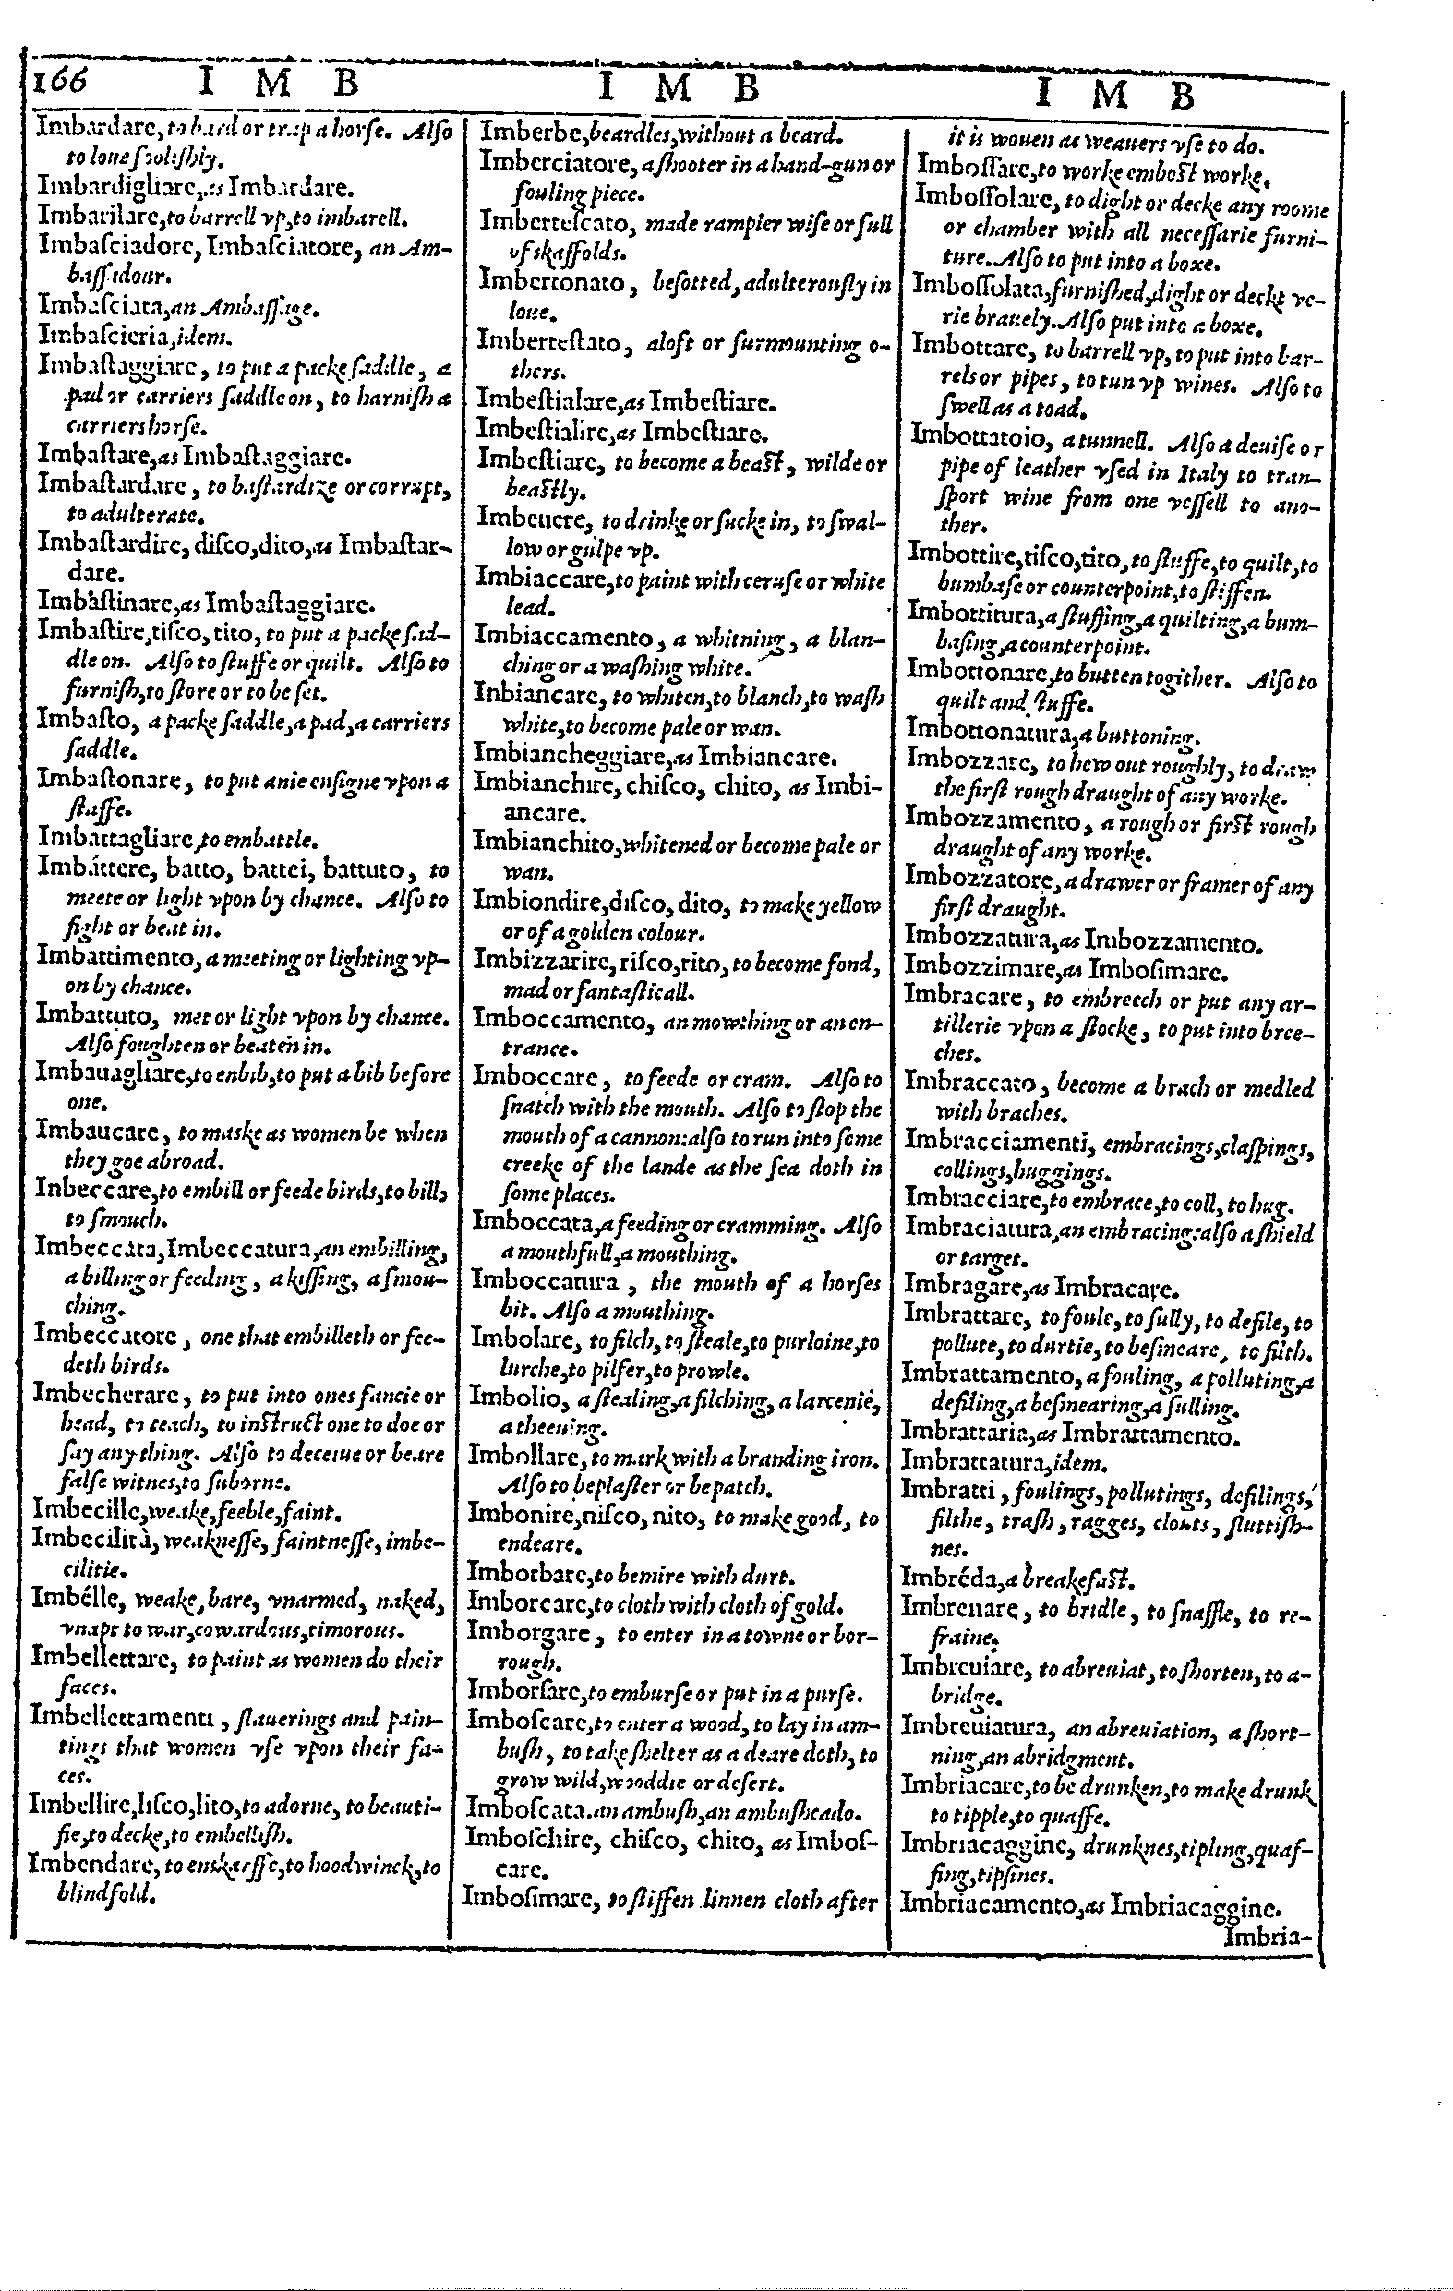 166 I M B I M B I M B
Imbardare, to bard or trap a horse. Also
to loue foolishly.
Imbardigliare, as Imbardare.
Imbarilare, to barrell vp, to imbarell.
Imbaſciadore, Imbaſciatore, an Am-
baſſadour.
Imbaſciata, an Ambaſſage.
Imbaſcieria, idem.
Imbaſtaggiare, to put a packe ſaddle, a
pad or carriers ſaddle on, to harniſh a
carriers horſe.
Imbaſtare, as Imbaſtaggiare.
Imbaſtardare, to baſtardize or corrupt,
to adulterate.
Imbaſtardire, diſco, dito, as Imbaſtar-
dare.
Imbaſtinare, as Imbaſtaggiare.
Imbaſtire, tiſco, tito, to put a packe ſad-
dle on. Alſo to ſtuffe or quilt. Alſo to
furniſh, to ſtore or to be ſet.
Imbaſto, a packe ſaddle, a pad, a carriers
ſaddle.
Imbaſtonare, to put anie enſigne vpon a
ſtaffe.
Imbattagliare, to embattle.
Imbáttere, batto, battei, battuto, to
meete or light vpon by chance. Alſo to
fight or beat in.
Imbattimento, a meeting or lighting vp-
on by chance.
Imbattuto, met or light vpon by chance.
Alſo foughten or beaten in.
Imbauagliare, to enbib, to put a bib before
one.
Imbaucare, to maske as women be when
they goe abroad.
Inbeccare, to embill or feede birds, to bill,
to ſmouch.
Imbeccata, Imbeccatura, an embilling,
a billing or feeding, a kiſſing, a ſmou-
ching.
Imbeccatore, one that embilleth or fee-
deth birds.
Imbecherare, to put into ones fancie or
head, to teach, to inſtruct one to doe or
ſay any thing. Alſo to deceiue or beare
falſe witnes, to ſuborne.
Imbecille, weake, feeble, faint.
Imbecilità, weakneſſe, faintneſſe, imbe-
cilitie.
Imbélle, weake, bare, vnarmed, naked,
vnapt to war, cowardous, timorous.
Imbellettare, to paint as women do their
faces.
Imbellettamenti, ſlauerings and pain-
tings that women vſe vpon their fa-
ces.
Imbellire, liſco, lito, to adorne, to beauti-
fie, to decke, to embelliſh.
Imbendare, to enſkarffe, to hoodwinck, to
blindfold.
Imberbe, beardles, without a beard.
Imberciatore, a ſhooter in a hand-gun or
fouling piece.
Imberteſcato, made rampier wiſe or full
of ſkaffolds.
Imbertonato, beſotted, adulterouſly in
loue.
Imberteſtato, aloft or ſurmounting o-
thers.
Imbeſtialare, as Imbeſtiare.
Imbeſtialire, as Imbeſtiare.
Imbeſtiare, to become a beaſt, wilde or
beaſtly.
Imbeuere, to drinke or ſucke in, to ſwal-
low or gulpe vp.
Imbiaccare, to paint with ceruſe or white
lead.
Imbiaccamento, a whitning, a blan-
ching or a waſhing white.
Inbiancare, to whiten, to blanch, to waſh
white, to become pale or wan.
Imbiancheggiare, as Imbiancare.
Imbianchire, chiſco, chito, as Imbi-
ancare.
Imbianchito, whitened or become pale or
wan.
Imbiondire, diſco, dito, to make yellow
or of a golden colour.
Imbizzarire, riſco, rito, to become fond,
mad or fantaſticall.
Imboccamento, an mowthing or an en-
trance.
Imboccare, to feede or cram. Alſo to
ſnatch with the mouth. Alſo to ſtop the
mouth of a cannon: alſo to run into ſome
creeke of the lande as the ſea doth in
ſome places.
Imboccata, a feeding or cramming. Alſo
a mouthfull, a mouthing.
Imboccatura, the mouth of a horſes
bit. Alſo a mouthing.
Imbolare, to filch, to ſteale, to purloine, to
lurche, to pilfer, to prowle.
Imbolio, a ſtealing, a filching, a larcenie,
a theeuing.
Imbollare, to mark with a branding iron.
Alſo to beplaſter or bepatch.
Imbonire, niſco, nito, to make good, to
endeare.
Imborbare, to bemire with durt.
Imborcare, to cloth with cloth of gold.
Imborgare, to enter in a towne or bor-
rough.
Imborſare, to emburſe or put in a purſe.
Imboſcare, to enter a wood, to lay in am-
buſh, to take ſhelter as a deare doth, to
grow wild, wooddie or deſert.
Imboſcata. an ambuſh, an ambuſheado.
Imboſchire, chiſco, chito, as Imboſ-
care.
Imboſimare, to ſtiffen linnen cloth after
it is wouen as weauers vſe to do.
Imboſſare, to worke emboſt worke.
Imboſſolare, to dight or decke any roome
or chamber with all neceſſarie furni-
ture. Alſo to put into a boxe.
Imboſſolata, furniſhed, dight or deckt ve-
rie brauely. Alſo put into a boxe.
Imbottare, to barrell vp, to put into bar-
rels or pipes, to tun vp wines. Alſo to
ſwell as a toad.
Imbottatoio, a tunnell. Alſo a deuiſe or
pipe of leather vſed in Italy to tran-
ſport wine from one veſſell to ano-
ther.
Imbottire, tiſco, tito, to ſtuffe, to quilt, to
bumbaſe or counterpoint, to ſtiffen.
Imbottitura, a ſtuffing, a quilting, a bum-
baſing, a counterpoint.
Imbottonare, to button togither. Alſo to
quilt and ſtuffe.
Imbottonatura, a buttoning.
Imbozzare, to hew out roughly, to draw
the firſt rough draught of any worke.
Imbozzamento, a rough or firſt rough
draught of any worke.
Imbozzatore, a drawer or framer of any
firſt draught.
Imbozzatura, as Imbozzamento.
Imbozzimare, as Imboſimare.
Imbracare, to embreech or put any ar-
tillerie vpon a ſtocke, to put into bree-
ches.
Imbraccato, become a brach or medled
with braches.
Imbracciamenti, embracings, claſpings,
collings, huggings.
Imbracciare, to embrace, to coll, to hug.
Imbraciatura, an embracing: alſo a ſhield
or target.
Imbragare, as Imbracare.
Imbrattare, to foule, to ſully, to defile, to
pollute, to durtie, to beſmeare, to filth.
Imbrattamento, a fouling, a polluting, a
defiling, a beſmearing, a ſulling.
Imbrattaria, as Imbrattamento.
Imbrattatura, idem.
Imbratti, foulings, pollutings, defilings,
filthe, traſh, ragges, clouts, ſluttiſh-
nes.
Imbréda, a breakefaſt.
Imbrenare, to bridle, to ſnaffle, to re-
fraine.
Imbreuiare, to abreuiat, to ſhorten, to a-
bridge.
Imbreuiatura, an abreuiation, a ſhort-
ning, an abridgment.
Imbriacare, to be drunken, to make drunk
to tipple, to quaffe.
Imbriacaggine, drunknes, tipling, quaf-
fing, tipſines.
Imbriacamento, as Imbriacaggine.
Imbria-